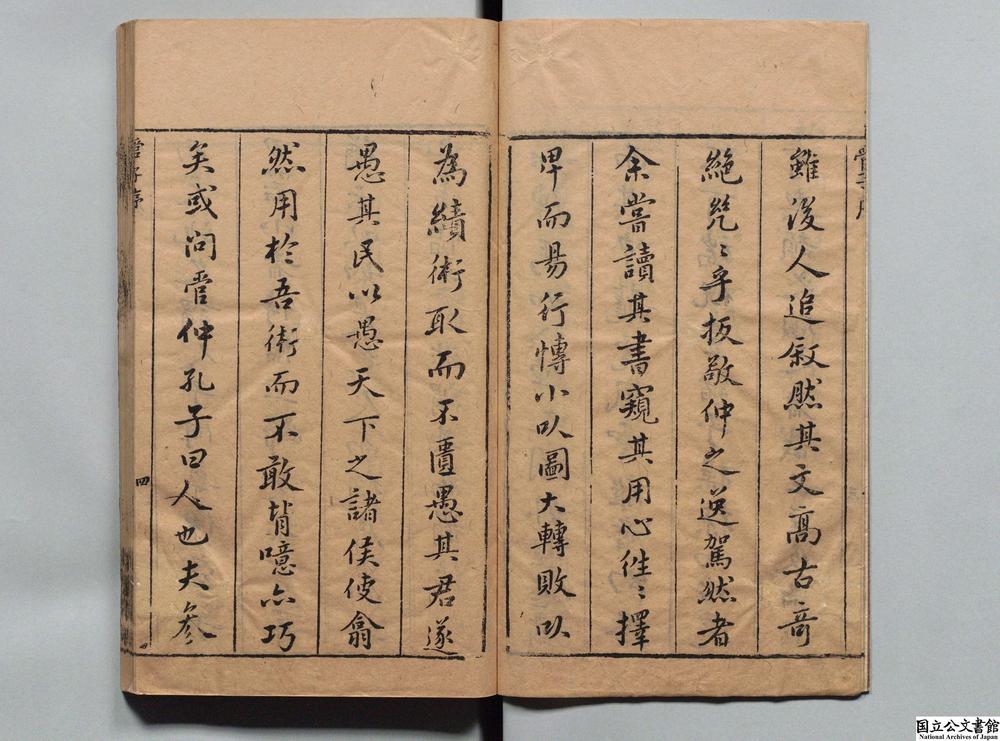 雖後人追叙然其文高古竒
絶咒〻乎扳敬仲之逸駕然者
余嘗讀其書窺其用心徃〻擇
卑而易行慱小以圖大轉敗以
為績術取而不匱愚其君遂
愚其民以愚天下之諸侯使翕
然用於吾術而不敢背噫亦巧
矣或問管仲孔子曰人也夫参
管子序
四
国立公文書館
National Archives of Japan